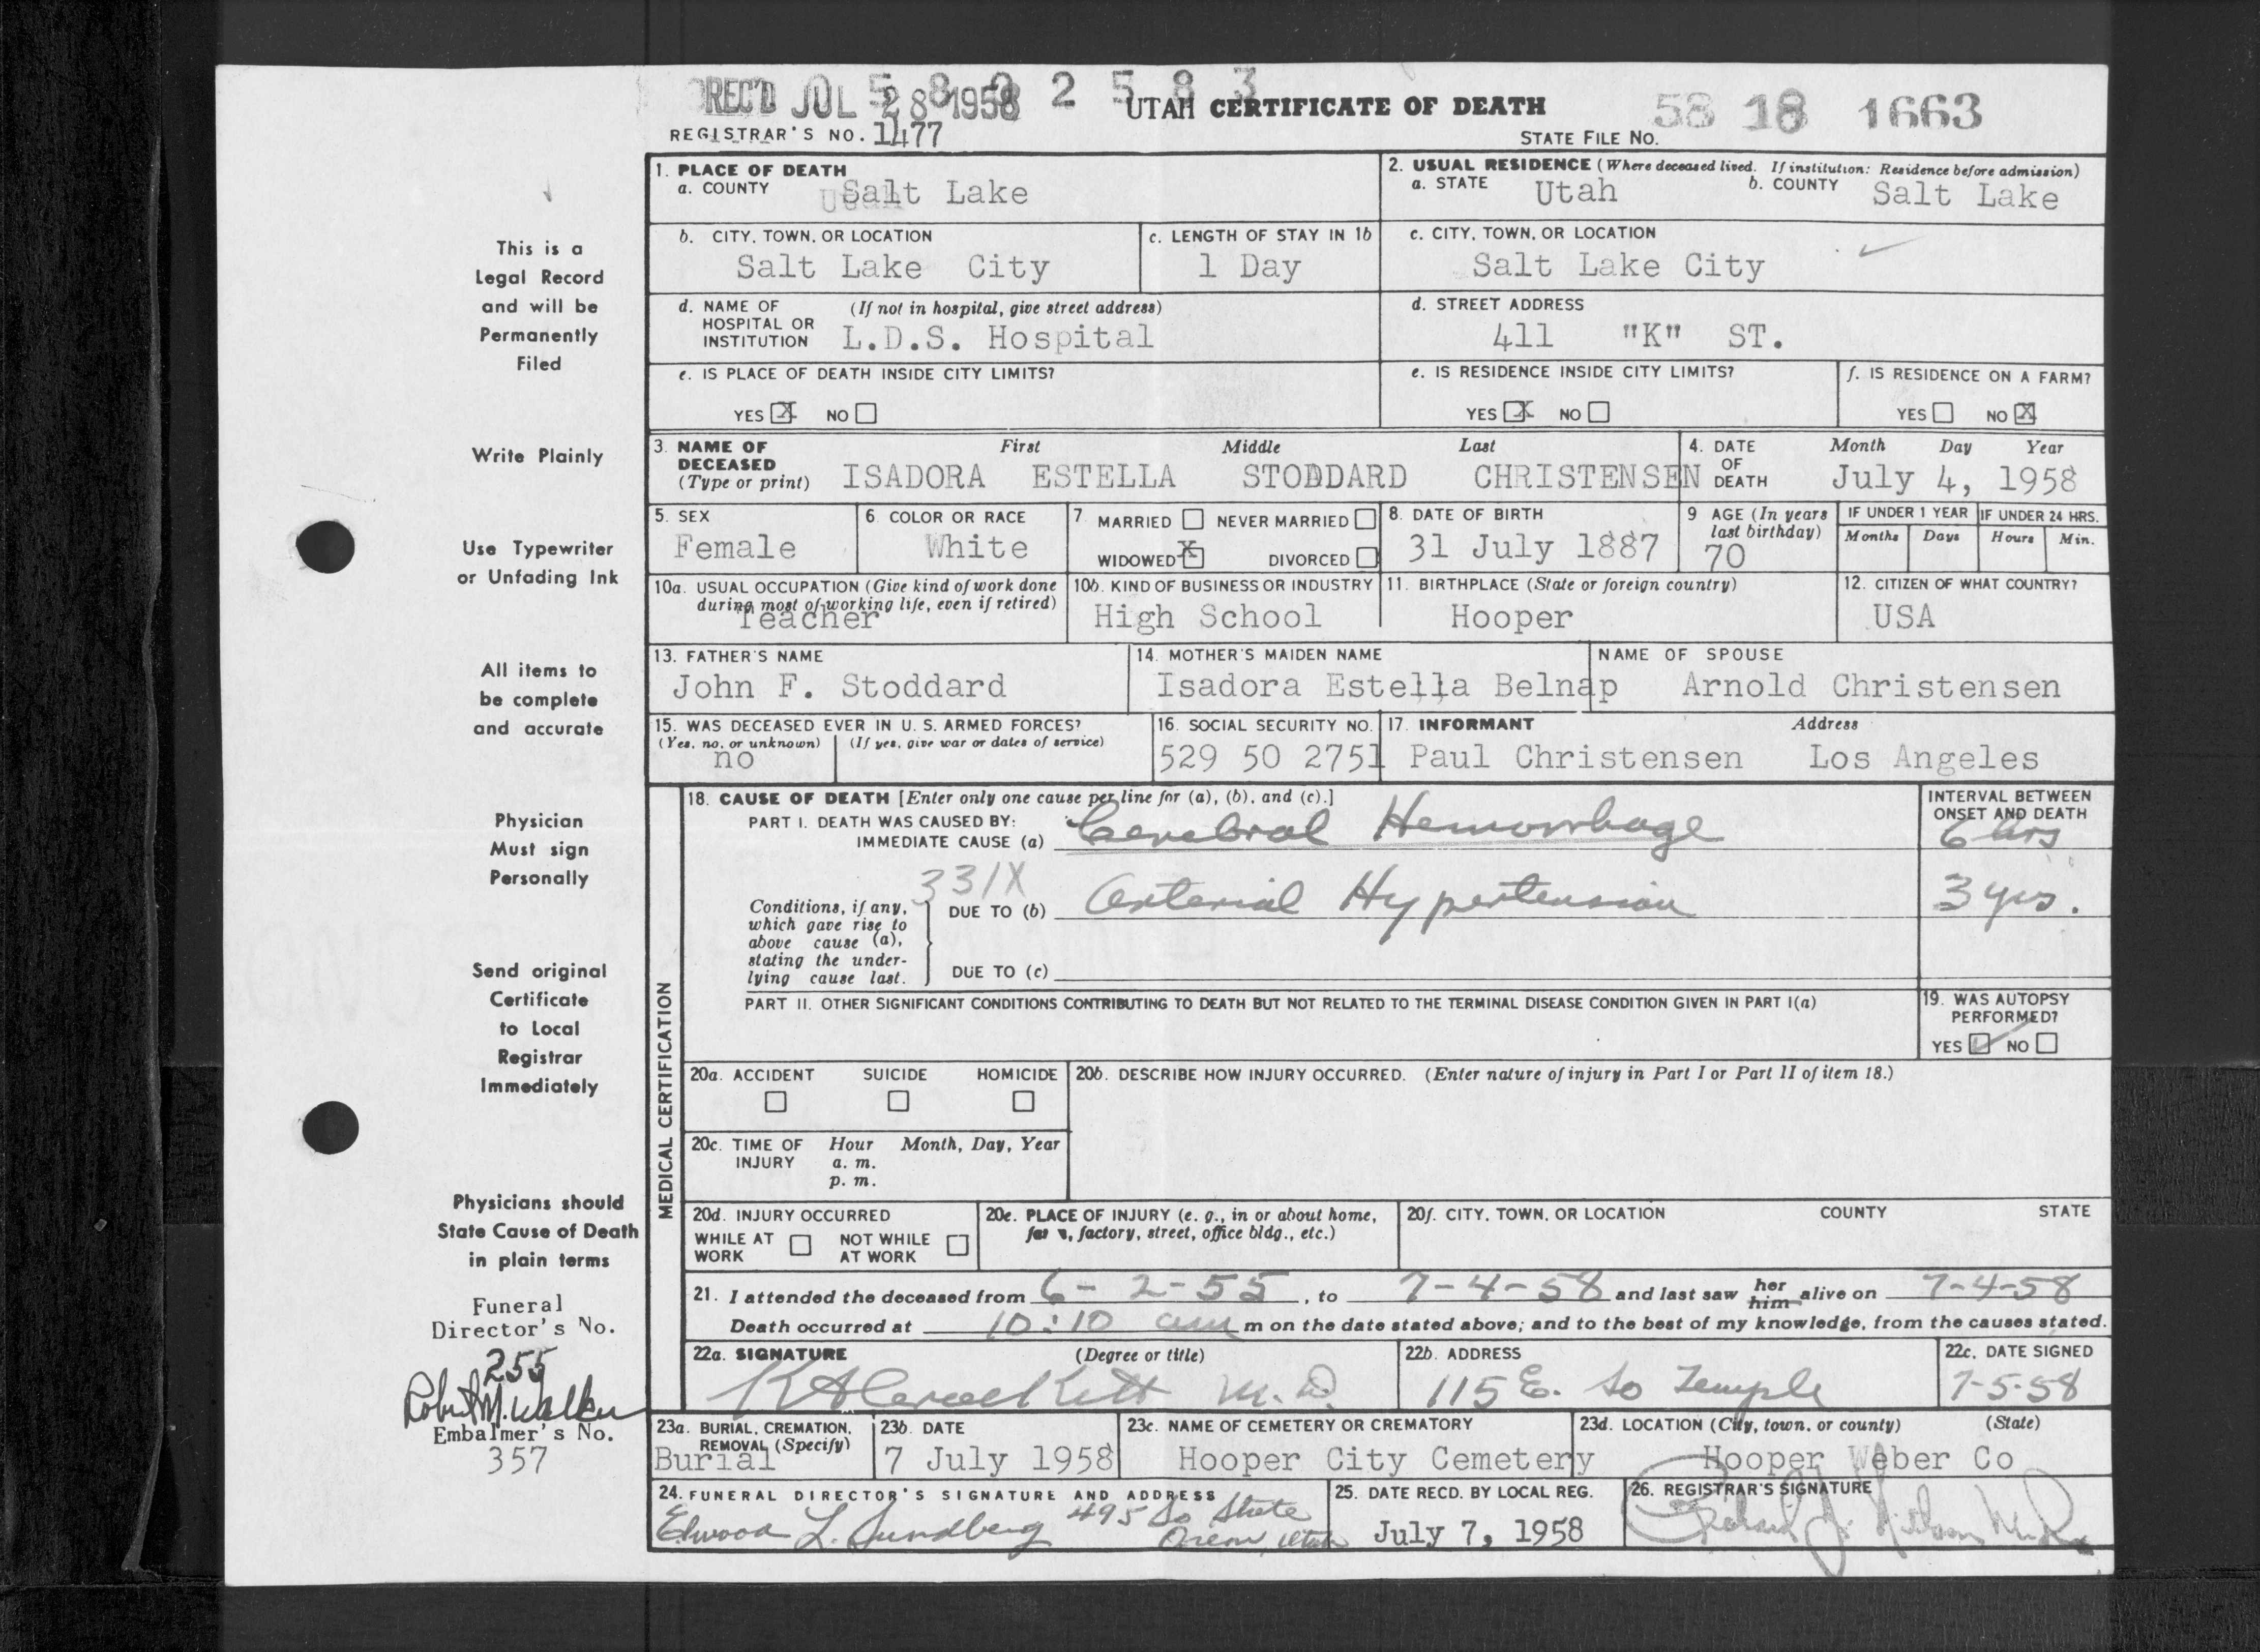 REC'D JUL 28 1958
58 02583
UTAH CERTIFICATE OF DEATH
58 18 1663
REGISTRAR'S NO. 1477
STATE FILE NO.
1. PLACE OF DEATH
a. COUNTY Salt Lake
2. USUAL RESIDENCE (Where deceased lived. If institution: Residence before admission)
a. STATE Utah b. COUNTY Salt Lake
b. CITY, TOWN, OR LOCATION
Salt Lake City
c. LENGTH OF STAY IN 1b
1 Day
c. CITY, TOWN, OR LOCATION
Salt Lake City
d. NAME OF HOSPITAL OR INSTITUTION (If not in hospital, give street address)
L.D.S. Hospital
d. STREET ADDRESS
411 "K" ST.
e. IS PLACE OF DEATH INSIDE CITY LIMITS?
YES X NO
e. IS RESIDENCE INSIDE CITY LIMITS?
YES X NO
f. IS RESIDENCE ON A FARM?
YES NO X
3. NAME OF DECEASED (Type or print)
First Middle Last
ISADORA ESTELLA STODDARD CHRISTENSEN
4. DATE OF DEATH
Month Day Year
July 4, 1958
5. SEX
Female
6. COLOR OR RACE
White
7. MARRIED NEVER MARRIED
WIDOWED X DIVORCED
8. DATE OF BIRTH
31 July 1887
9 AGE (In years last birthday)
70
IF UNDER 1 YEAR
Months Days
IF UNDER 24 HRS.
Hours Min.
10a. USUAL OCCUPATION (Give kind of work done during most of working life, even if retired)
Teacher
10b. KIND OF BUSINESS OR INDUSTRY
High School
11. BIRTHPLACE (State or foreign country)
Hooper
12. CITIZEN OF WHAT COUNTRY?
USA
13. FATHER'S NAME
John F. Stoddard
14. MOTHER'S MAIDEN NAME
Isadora Estella Belnap
NAME OF SPOUSE
Arnold Christensen
15. WAS DECEASED EVER IN U. S. ARMED FORCES?
(Yes, no, or unknown) (If yes, give war or dates of service)
no
16. SOCIAL SECURITY NO.
529 50 2751
17. INFORMANT Address
Paul Christensen Los Angeles
MEDICAL CERTIFICATION
18. CAUSE OF DEATH [Enter only one cause per line for (a), (b), and (c).]
PART I. DEATH WAS CAUSED BY:
IMMEDIATE CAUSE (a) Cerebral Hemorrhage
INTERVAL BETWEEN ONSET AND DEATH
6 hrs
331X
Conditions, if any, which gave rise to above cause (a), stating the underlying cause last.
DUE TO (b) Arterial Hypertension
3 yrs.
DUE TO (c)
PART II. OTHER SIGNIFICANT CONDITIONS CONTRIBUTING TO DEATH BUT NOT RELATED TO THE TERMINAL DISEASE CONDITION GIVEN IN PART I(a)
19. WAS AUTOPSY PERFORMED?
YES NO
20a. ACCIDENT SUICIDE HOMICIDE
20b. DESCRIBE HOW INJURY OCCURRED. (Enter nature of injury in Part I or Part II of item 18.)
20c. TIME OF INJURY Hour Month, Day, Year
a. m.
p. m.
20d. INJURY OCCURRED
WHILE AT WORK NOT WHILE AT WORK
20e. PLACE OF INJURY (e. g., in or about home, farm, factory, street, office bldg., etc.)
20f. CITY, TOWN, OR LOCATION COUNTY STATE
21. I attended the deceased from 6-2-55, to 7-4-58 and last saw her him alive on 7-4-58
Death occurred at 10:10 am m on the date stated above; and to the best of my knowledge, from the causes stated.
22a. SIGNATURE (Degree or title)
M.D.
22b. ADDRESS
115 E. So Temple
22c. DATE SIGNED
7-5-58
23a. BURIAL, CREMATION, REMOVAL (Specify)
Burial
23b. DATE
7 July 1958
23c. NAME OF CEMETERY OR CREMATORY
Hooper City Cemetery
23d. LOCATION (City, town, or county) (State)
Hooper Weber Co
24. FUNERAL DIRECTOR'S SIGNATURE AND ADDRESS
Elwood L. Sundberg 495 So State
Orem, Utah
25. DATE RECD. BY LOCAL REG.
July 7, 1958
26. REGISTRAR'S SIGNATURE
This is a
Legal Record
and will be
Permanently
Filed
Write Plainly
Use Typewriter
or Unfading Ink
All items to
be complete
and accurate
Physician
Must sign
Personally
Send original
Certificate
to Local
Registrar
Immediately
Physicians should
State Cause of Death
in plain terms
Funeral
Director's No.
255
Robert M. Walker
Embalmer's No.
357